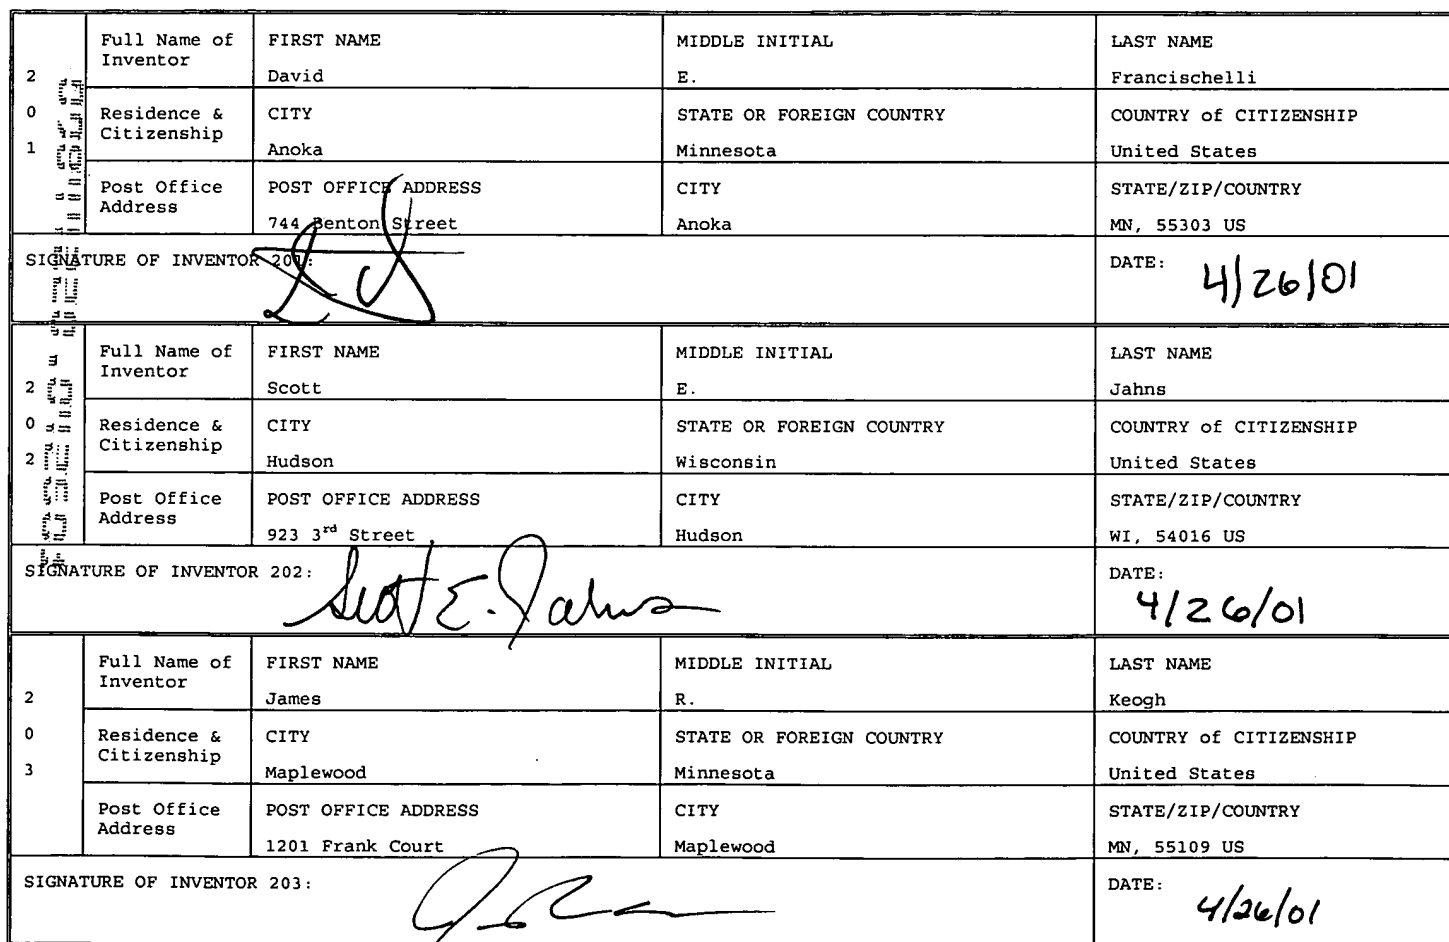 2
0
1
Full Name of
Inventor
FIRST NAME
David
MIDDLE INITIAL
E.
LAST NAME
Francischelli
Residence &
Citizenship
CITY
Anoka
STATE OR FOREIGN COUNTRY
Minnesota
COUNTRY of CITIZENSHIP
United States
Post Office
Address
POST OFFICE ADDRESS
744 Benton Street
CITY
Anoka
STATE/ZIP/COUNTRY
MN, 55303 US
SIGNATURE OF INVENTOR 201:
DATE:
4/26/01
2
0
2
Full Name of
Inventor
FIRST NAME
Scott
MIDDLE INITIAL
E.
LAST NAME
Jahns
Residence &
Citizenship
CITY
Hudson
STATE OR FOREIGN COUNTRY
Wisconsin
COUNTRY of CITIZENSHIP
United States
Post Office
Address
POST OFFICE ADDRESS
923 3rd Street
CITY
Hudson
STATE/ZIP/COUNTRY
WI, 54016 US
SIGNATURE OF INVENTOR 202:
Scott E. Jahns
DATE:
4/26/01
2
0
3
Full Name of
Inventor
FIRST NAME
James
MIDDLE INITIAL
R.
LAST NAME
Keogh
Residence &
Citizenship
CITY
Maplewood
STATE OR FOREIGN COUNTRY
Minnesota
COUNTRY of CITIZENSHIP
United States
Post Office
Address
POST OFFICE ADDRESS
1201 Frank Court
CITY
Maplewood
STATE/ZIP/COUNTRY
MN, 55109 US
SIGNATURE OF INVENTOR 203:
DATE:
4/26/01